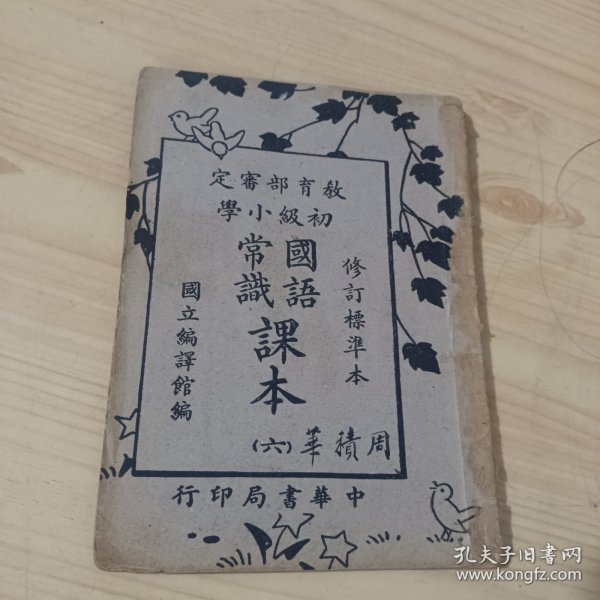 教育部審定
初級小學
修訂標準本
國語
常識
課本
國立編譯館編
(六)
周積華
中華書局印行
孔夫子旧书网
www.kongfz.com